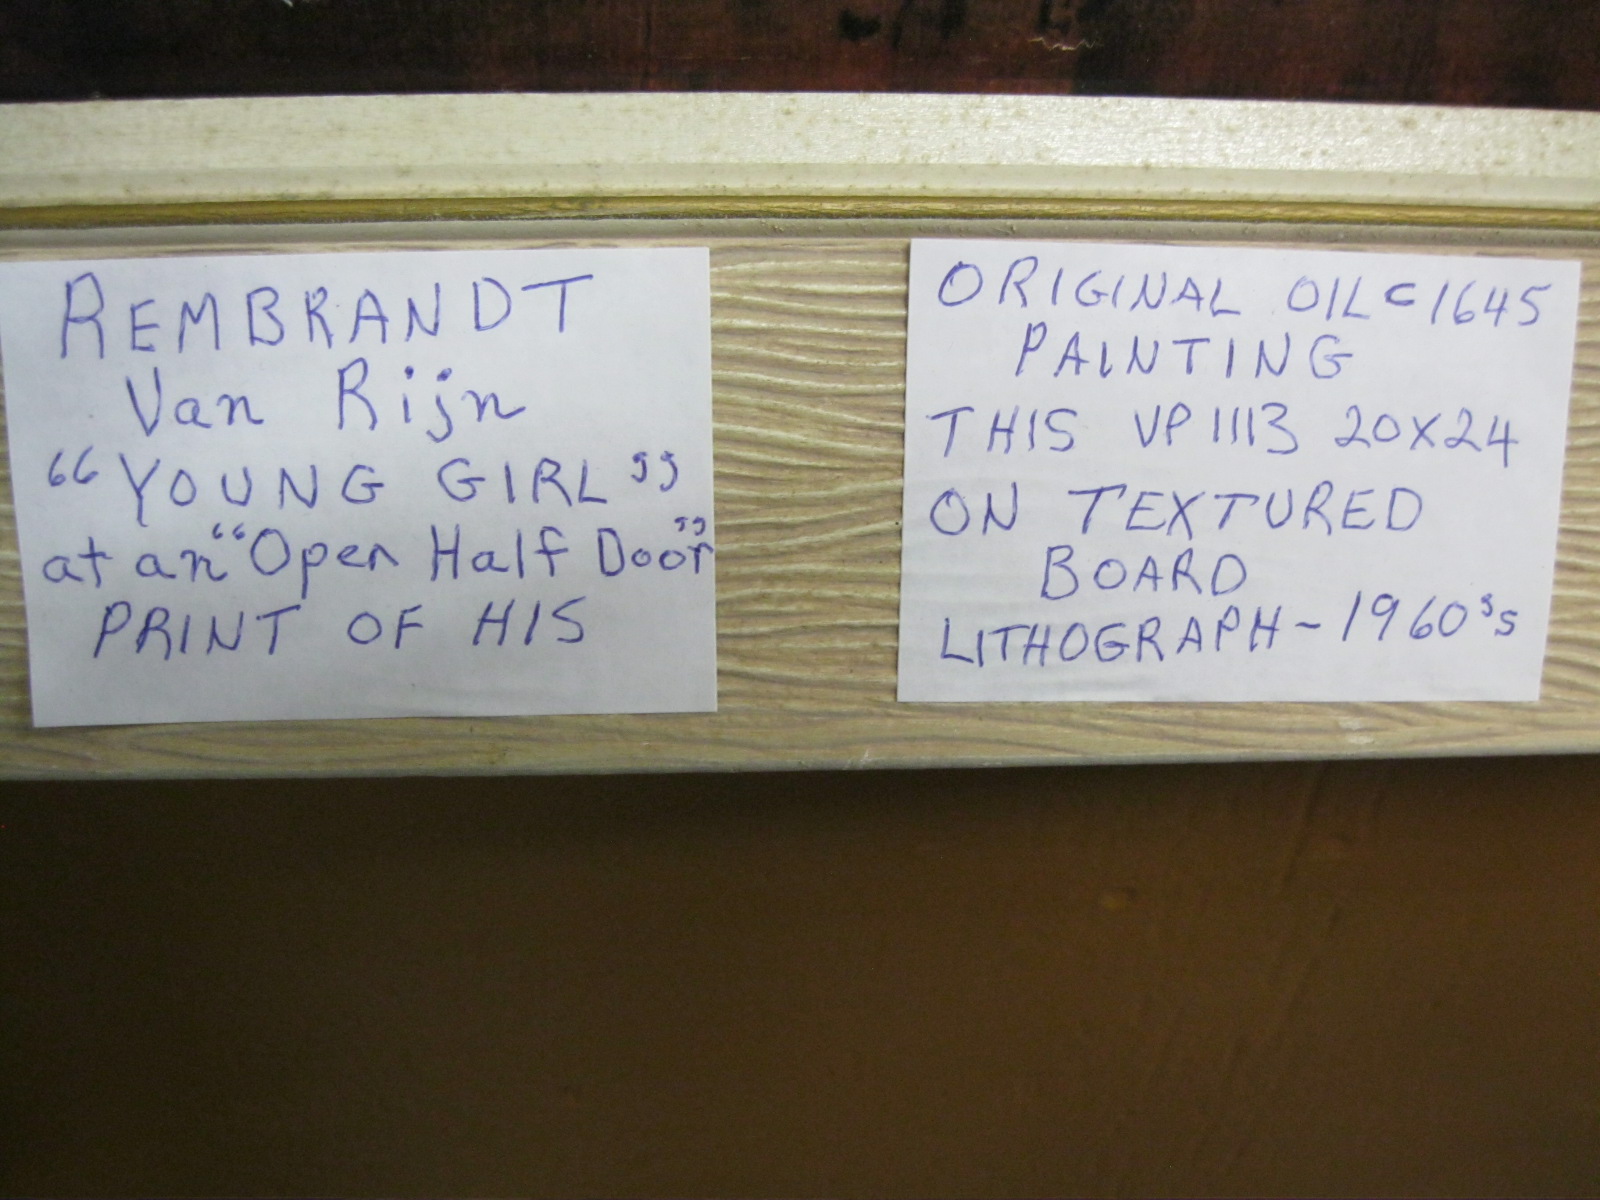 REMBRANDT
Van Rijn
“YOUNG GIRL”
at an “Open Half Door”
PRINT OF HIS
ORIGINAL OIL c 1645
PAINTING
THIS VP1113 20X24
ON TEXTURED
BOARD
LITHOGRAPH - 1960's